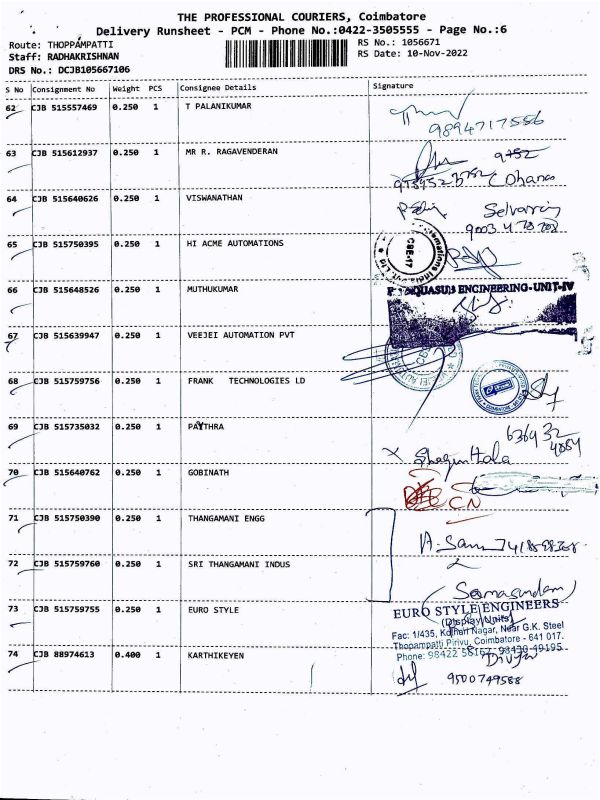 THE PROFESSIONAL COURIERS, Coimbatore
Delivery Runsheet - PCM - Phone No.:0422-3505555 - Page No.:6
Route: THOPPAMPATTI
RS No.: 1056671
Staff: RADHAKRISHNAN
RS Date: 10-Nov-2022
DRS No.: DCJB105667106
S No Consignment No Weight PCS Consignee Details Signature
62 CJB 515557469 0.250 1 T PALANIKUMAR
9894717556
63 CJB 515612937 0.250 1 MR R. RAGAVENDERAN
64 CJB 515640626 0.250 1 VISWANATHAN
65 CJB 515750395 0.250 1 HI ACME AUTOMATIONS
CBE-17
66 CJB 515648526 0.250 1 MUTHUKUMAR
AQUASUB ENGINEERING-UNIT-IV
67 CJB 515639947 0.250 1 VEEJEI AUTOMATION PVT
68 CJB 515759756 0.250 1 FRANK TECHNOLOGIES LD
69 CJB 515735032 0.250 1 PAYTHRA
70 CJB 515640762 0.250 1 GOBINATH
CN
71 CJB 515750390 0.250 1 THANGAMANI ENGG
72 CJB 515759760 0.250 1 SRI THANGAMANI INDUS
73 CJB 515759755 0.250 1 EURO STYLE
EURO STYLE ENGINEERS
(Display Units)
Fac: 1/435, Nagar, Near G.K. Steel
Thoppampatti Pirivu, Coimbatore - 641 017.
Phone: 98422 98430 49195
74 CJB 88974613 0.400 1 KARTHIKEYEN
Divya
9500749588